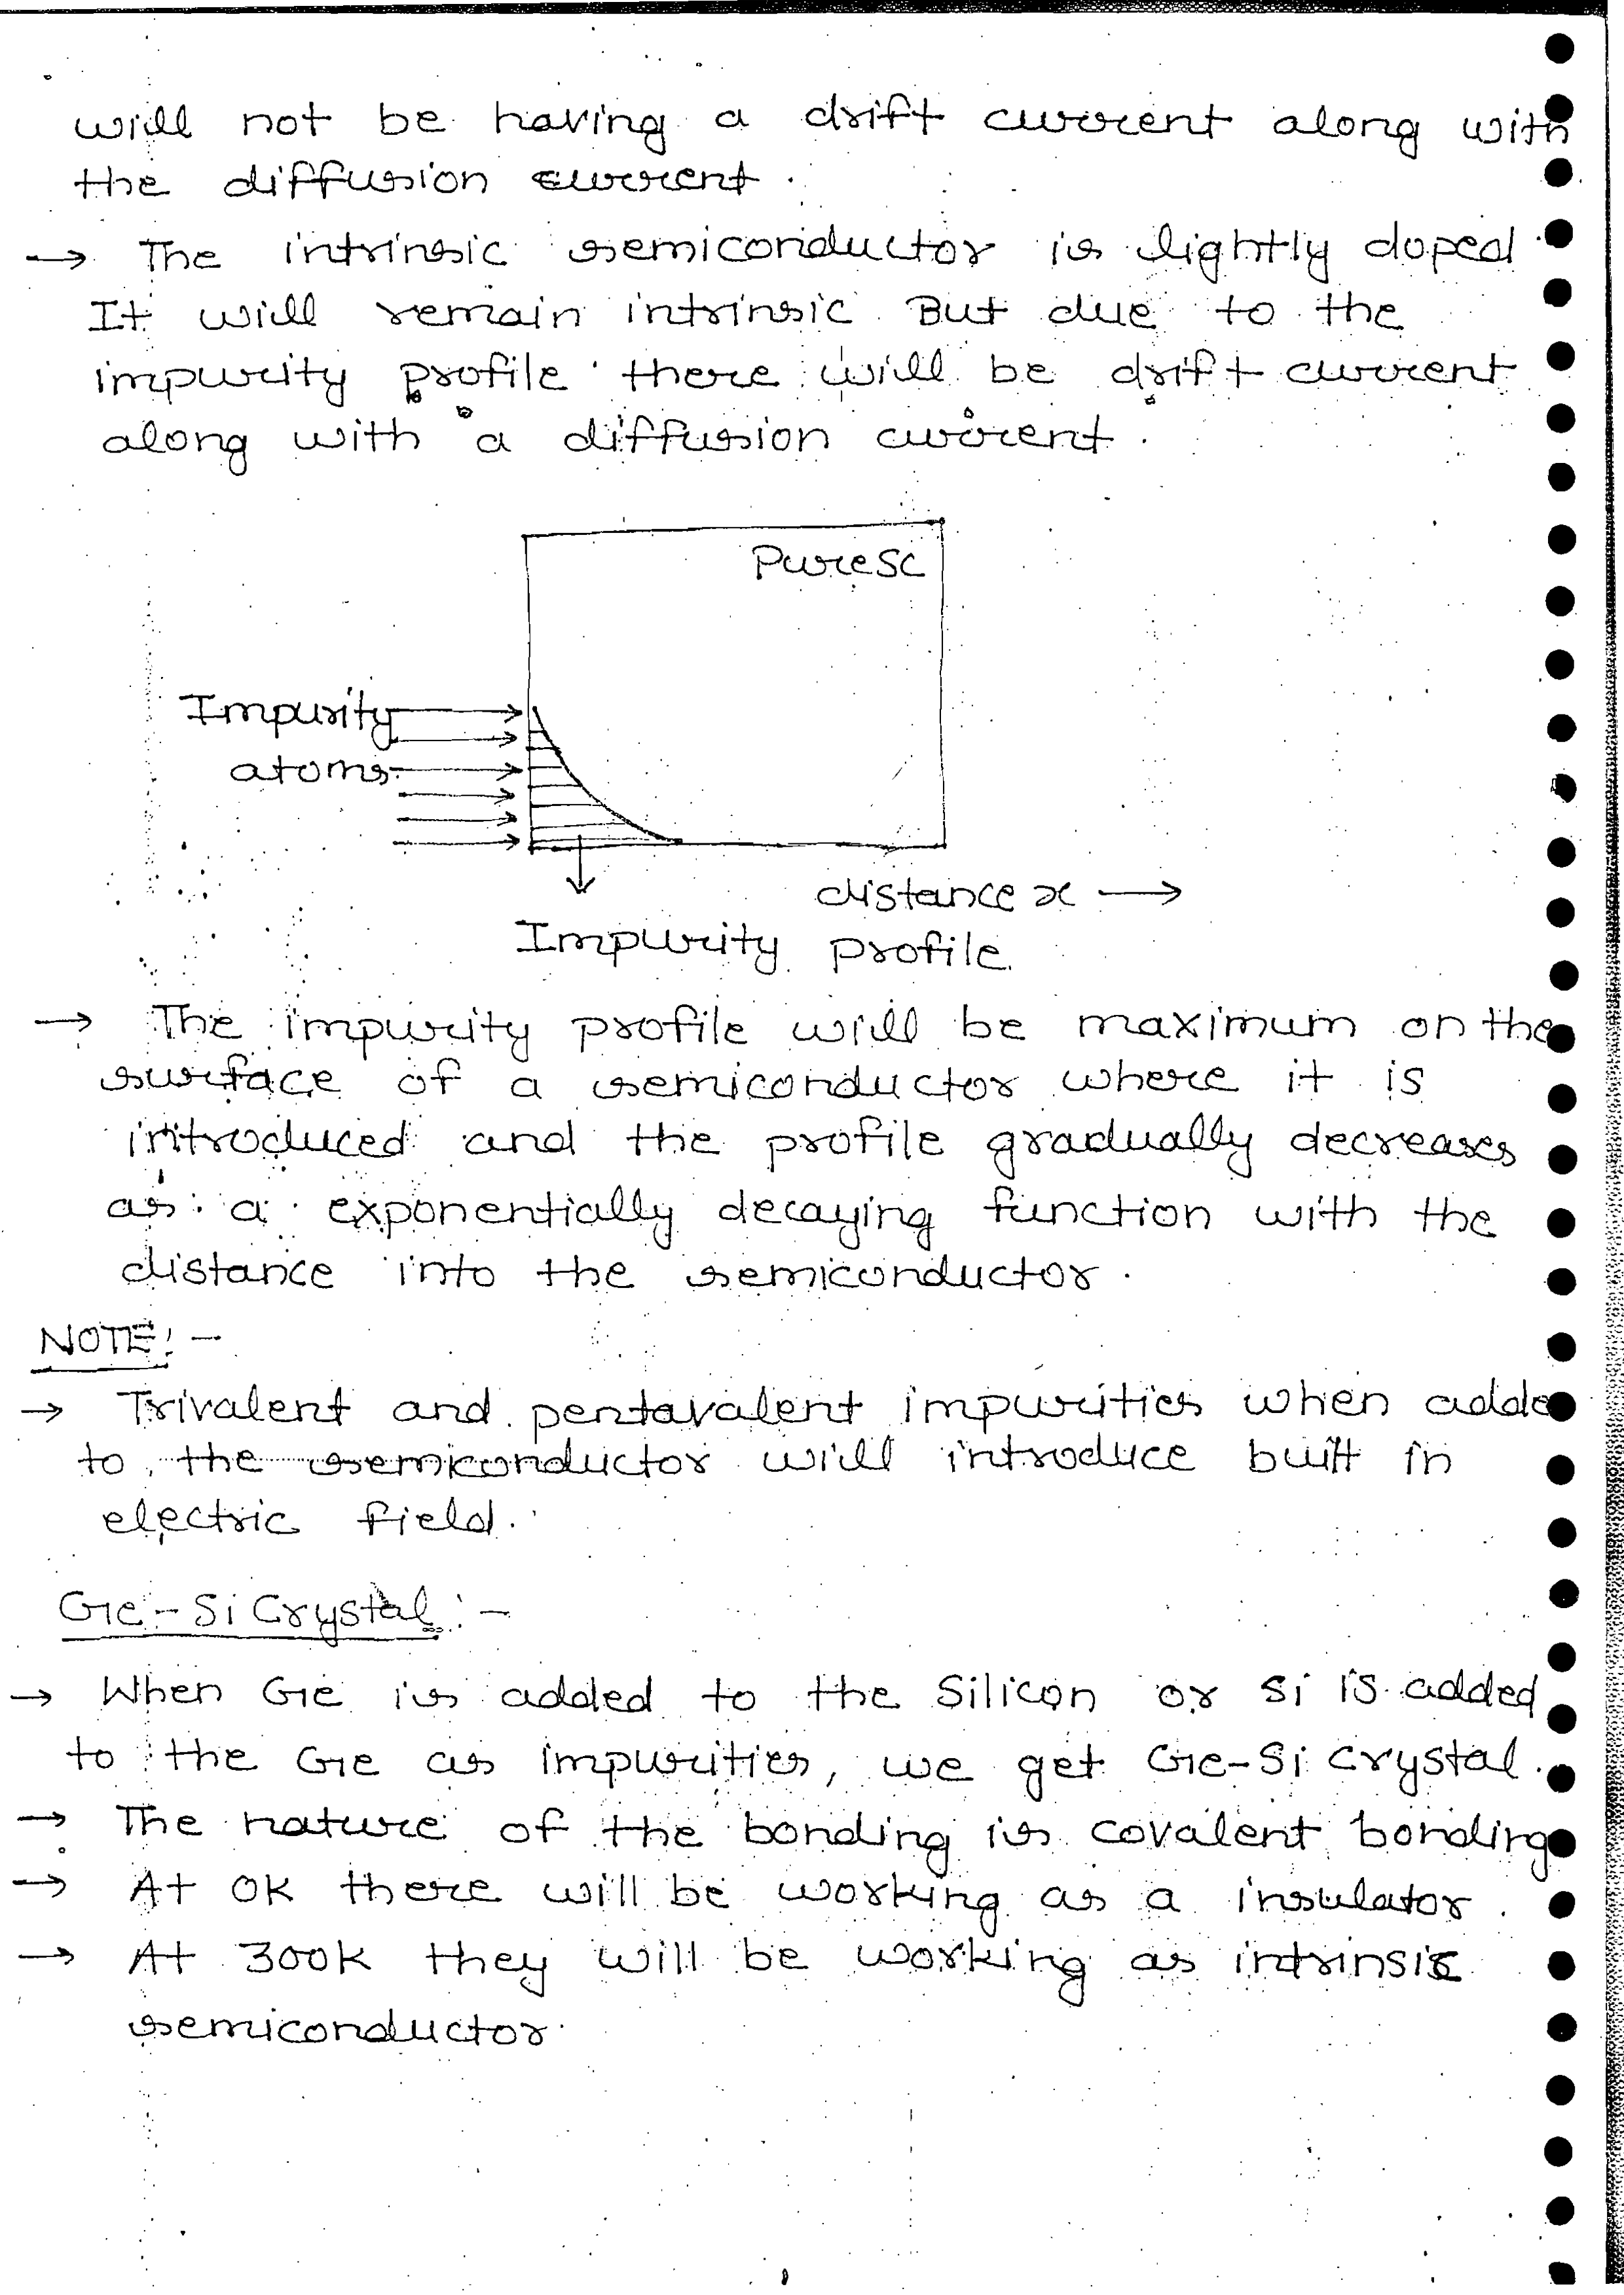 will not be having a drift current along with
the diffusion current.
→ The intrinsic semiconductor is lightly doped.
It will remain intrinsic. But due to the
impurity profile there will be drift current
along with a diffusion current.
Pure SC
Impurity
atoms
distance x →
Impurity profile.
→ The impurity profile will be maximum on the
surface of a semiconductor where it is
introduced and the profile gradually decreases
as a exponentially decaying function with the
distance into the semiconductor.
NOTE:-
→ Trivalent and pentavalent impurities when adde
to the semiconductor will introduce built in
electric field.
Ge-Si Crystal:-
→ When Ge is added to the Silicon or Si is added
to the Ge as impurities, we get Ge-Si crystal.
→ The nature of the bonding is covalent bonding
→ At 0K there will be working as a insulator.
→ At 300K they will be working as intrinsic
semiconductor.